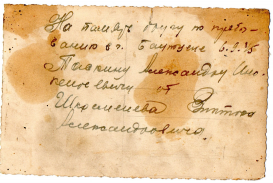 На память другу по пребы-
ванию в г. Баутцене 5.9.45
Пашкину Александру Ино-
кентьевичу от
Шереметева Виктора
Александровича.